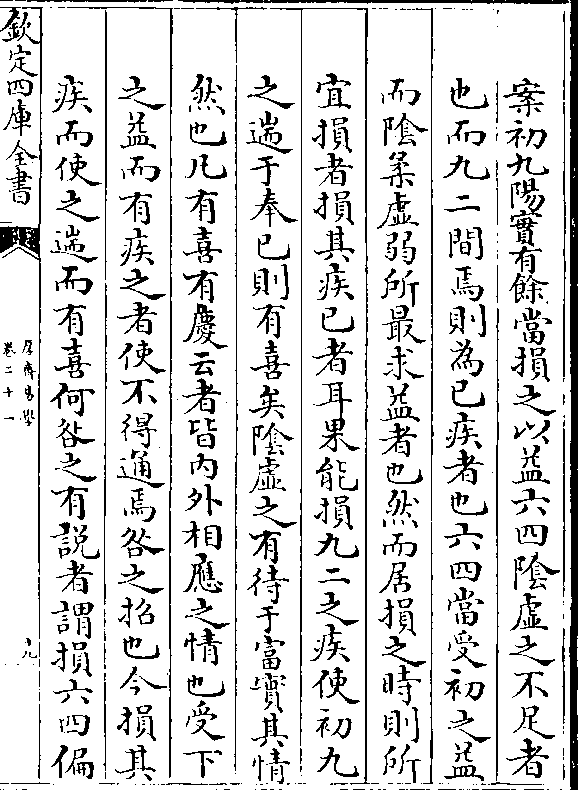 案初九陽實有餘當損之以益六四隂虚之不足者
也而九二間焉則為已疾者也六四當受初之益
而隂柔虚弱所最求益者也然而居損之時則所
宜損者損其疾已者耳果能損九二之疾使初九
之遄于奉已則有喜矣隂虚之有待于富實其情
然也凡有喜有慶云者皆内外相應之情也受下
之益而有疾之者使不得通焉咎之招也今損其
疾而使之遄而有喜何咎之有説者謂損六四偏
欽定四庫全書
厚齋易學
卷二十一
十九